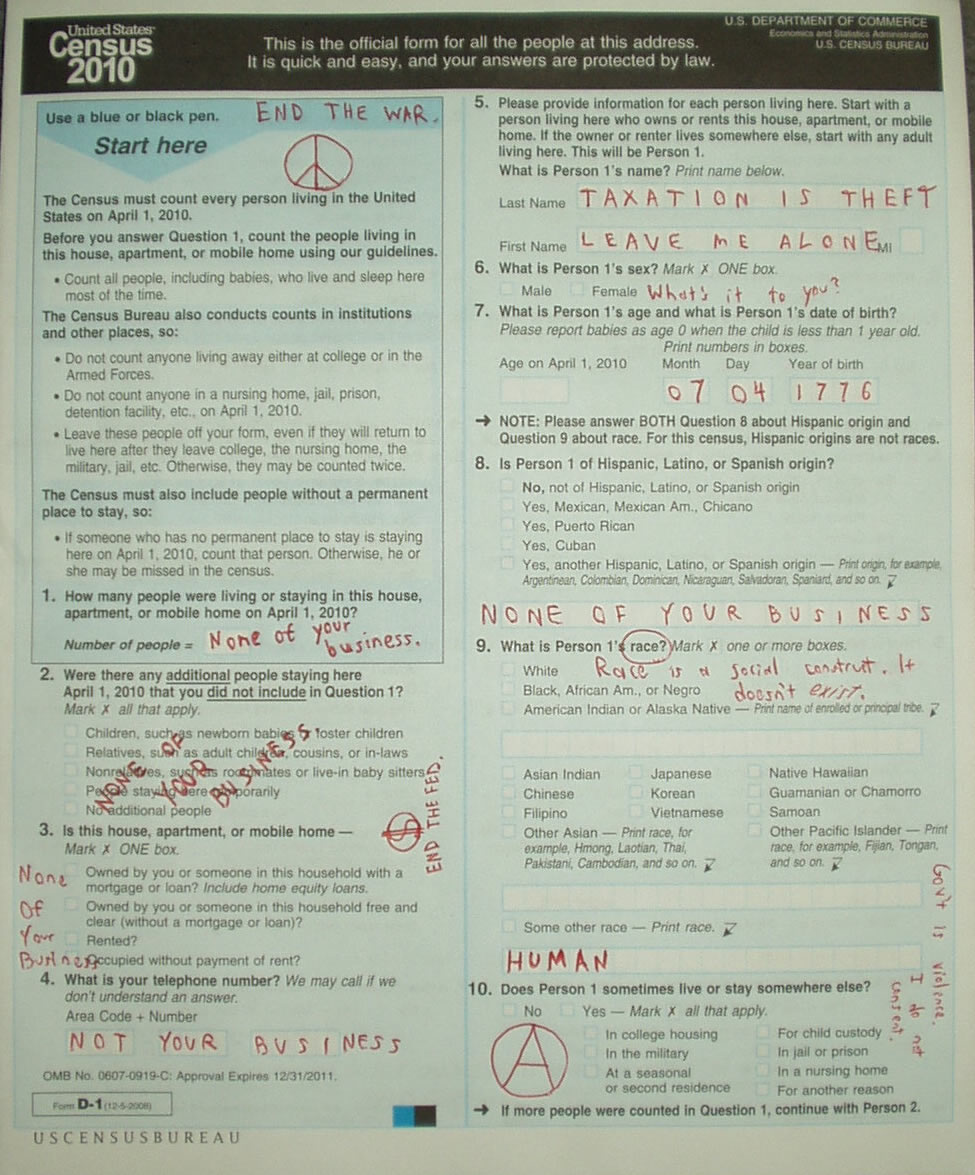 United States
Census
2010
This is the official form for all the people at this address.
It is quick and easy, and your answers are protected by law.
U.S. DEPARTMENT OF COMMERCE
Economics and Statistics Administration
U.S. CENSUS BUREAU
Use a blue or black pen.
END THE WAR.
Start here
The Census must count every person living in the United
States on April 1, 2010.
Before you answer Question 1, count the people living in
this house, apartment, or mobile home using our guidelines.
• Count all people, including babies, who live and sleep here
most of the time.
The Census Bureau also conducts counts in institutions
and other places, so:
• Do not count anyone living away either at college or in the
Armed Forces.
• Do not count anyone in a nursing home, jail, prison,
detention facility, etc., on April 1, 2010.
• Leave these people off your form, even if they will return to
live here after they leave college, the nursing home, the
military, jail, etc. Otherwise, they may be counted twice.
The Census must also include people without a permanent
place to stay, so:
• If someone who has no permanent place to stay is staying
here on April 1, 2010, count that person. Otherwise, he or
she may be missed in the census.
1. How many people were living or staying in this house,
apartment, or mobile home on April 1, 2010?
Number of people = None of your
business.
2. Were there any additional people staying here
April 1, 2010 that you did not include in Question 1?
Mark X all that apply.
Children, such as newborn babies or foster children
Relatives, such as adult children, cousins, or in-laws
Nonrelatives, such as roommates or live-in baby sitters
People staying here temporarily
No additional people
NONE OF
YOUR
BUSINESS
$
END THE FED.
3. Is this house, apartment, or mobile home —
Mark X ONE box.
Owned by you or someone in this household with a
mortgage or loan? Include home equity loans.
Owned by you or someone in this household free and
clear (without a mortgage or loan)?
Rented?
Occupied without payment of rent?
None
Of
Your
Business
4. What is your telephone number? We may call if we
don't understand an answer.
Area Code + Number
NOT YOUR BUSINESS
OMB No. 0607-0919-C: Approval Expires 12/31/2011.
Form D-1 (12-5-2008)
USCENSUSBUREAU
5. Please provide information for each person living here. Start with a
person living here who owns or rents this house, apartment, or mobile
home. If the owner or renter lives somewhere else, start with any adult
living here. This will be Person 1.
What is Person 1's name? Print name below.
Last Name TAXATION IS THEFT
First Name LEAVE ME ALONE MI
6. What is Person 1's sex? Mark X ONE box.
Male Female What's it to you?
7. What is Person 1's age and what is Person 1's date of birth?
Please report babies as age 0 when the child is less than 1 year old.
Print numbers in boxes.
Age on April 1, 2010 Month Day Year of birth
07 04 1776
→ NOTE: Please answer BOTH Question 8 about Hispanic origin and
Question 9 about race. For this census, Hispanic origins are not races.
8. Is Person 1 of Hispanic, Latino, or Spanish origin?
No, not of Hispanic, Latino, or Spanish origin
Yes, Mexican, Mexican Am., Chicano
Yes, Puerto Rican
Yes, Cuban
Yes, another Hispanic, Latino, or Spanish origin — Print origin, for example,
Argentinean, Colombian, Dominican, Nicaraguan, Salvadoran, Spaniard, and so on.
NONE OF YOUR BUSINESS
9. What is Person 1's race? Mark X one or more boxes.
White
Black, African Am., or Negro
Race is a social construct. It
doesn't exist.
American Indian or Alaska Native — Print name of enrolled or principal tribe.
Asian Indian Japanese Native Hawaiian
Chinese Korean Guamanian or Chamorro
Filipino Vietnamese Samoan
Other Asian — Print race, for
example, Hmong, Laotian, Thai,
Pakistani, Cambodian, and so on.
Other Pacific Islander — Print
race, for example, Fijian, Tongan,
and so on.
Some other race — Print race.
HUMAN
Gov't is violence.
I do not
consent.
10. Does Person 1 sometimes live or stay somewhere else?
No Yes — Mark X all that apply.
In college housing For child custody
In the military In jail or prison
At a seasonal
or second residence
In a nursing home
For another reason
A
→ If more people were counted in Question 1, continue with Person 2.